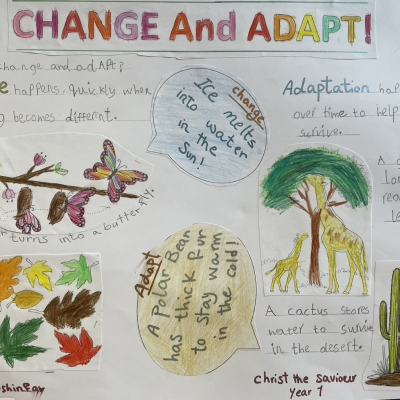 CHANGE And ADAPT!
change and adApt?
happens quickly when
becomes different.
change
Ice melts
into water
in the
Sun!
Adaptation
over time to help
survive.
turns into a butterfly.
Adapt
A Polar Bear
has thick fur
to stay warm
in the cold!
A cactus stores
water to survive
in the desert.
Christ the Saviour
Year 1